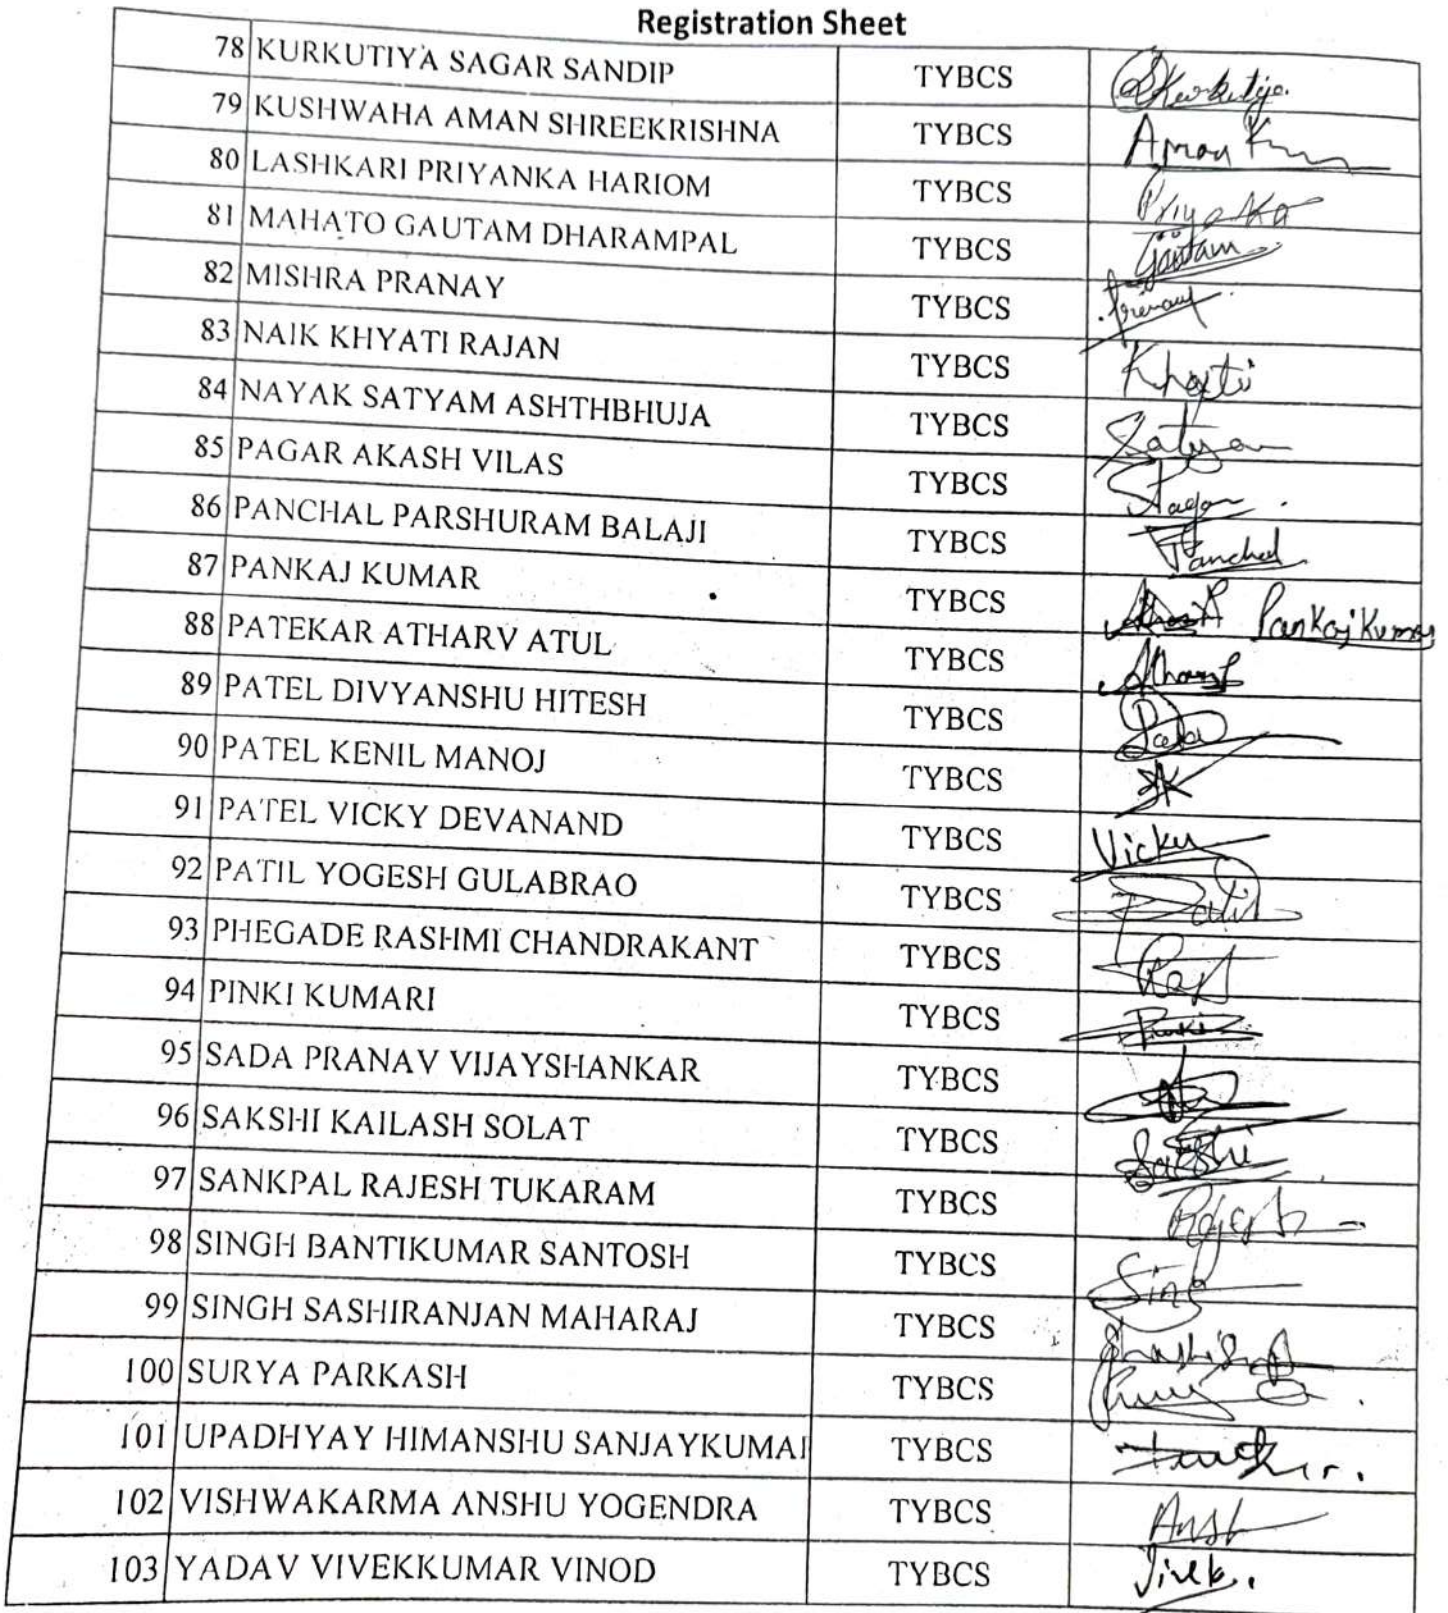 Registration Sheet
78 KURKUTIYA SAGAR SANDIP TYBCS SKurkutiya
79 KUSHWAHA AMAN SHREEKRISHNA TYBCS Aman
80 LASHKARI PRIYANKA HARIOM TYBCS Priyanka
81 MAHATO GAUTAM DHARAMPAL TYBCS Gautam
82 MISHRA PRANAY TYBCS Pranay
83 NAIK KHYATI RAJAN TYBCS Khyati
84 NAYAK SATYAM ASHTHBHUJA TYBCS Satyam
85 PAGAR AKASH VILAS TYBCS Pagar
86 PANCHAL PARSHURAM BALAJI TYBCS Panchal
87 PANKAJ KUMAR TYBCS Pankaj Kumar
88 PATEKAR ATHARV ATUL TYBCS Atharv
89 PATEL DIVYANSHU HITESH TYBCS
90 PATEL KENIL MANOJ TYBCS
91 PATEL VICKY DEVANAND TYBCS Vicky
92 PATIL YOGESH GULABRAO TYBCS Patil
93 PHEGADE RASHMI CHANDRAKANT TYBCS
94 PINKI KUMARI TYBCS Pinki
95 SADA PRANAV VIJAYSHANKAR TYBCS
96 SAKSHI KAILASH SOLAT TYBCS Sakshi
97 SANKPAL RAJESH TUKARAM TYBCS Rajesh
98 SINGH BANTIKUMAR SANTOSH TYBCS Singh
99 SINGH SASHIRANJAN MAHARAJ TYBCS
100 SURYA PARKASH TYBCS
101 UPADHYAY HIMANSHU SANJAYKUMAI TYBCS
102 VISHWAKARMA ANSHU YOGENDRA TYBCS Ansh
103 YADAV VIVEKKUMAR VINOD TYBCS Vivek.